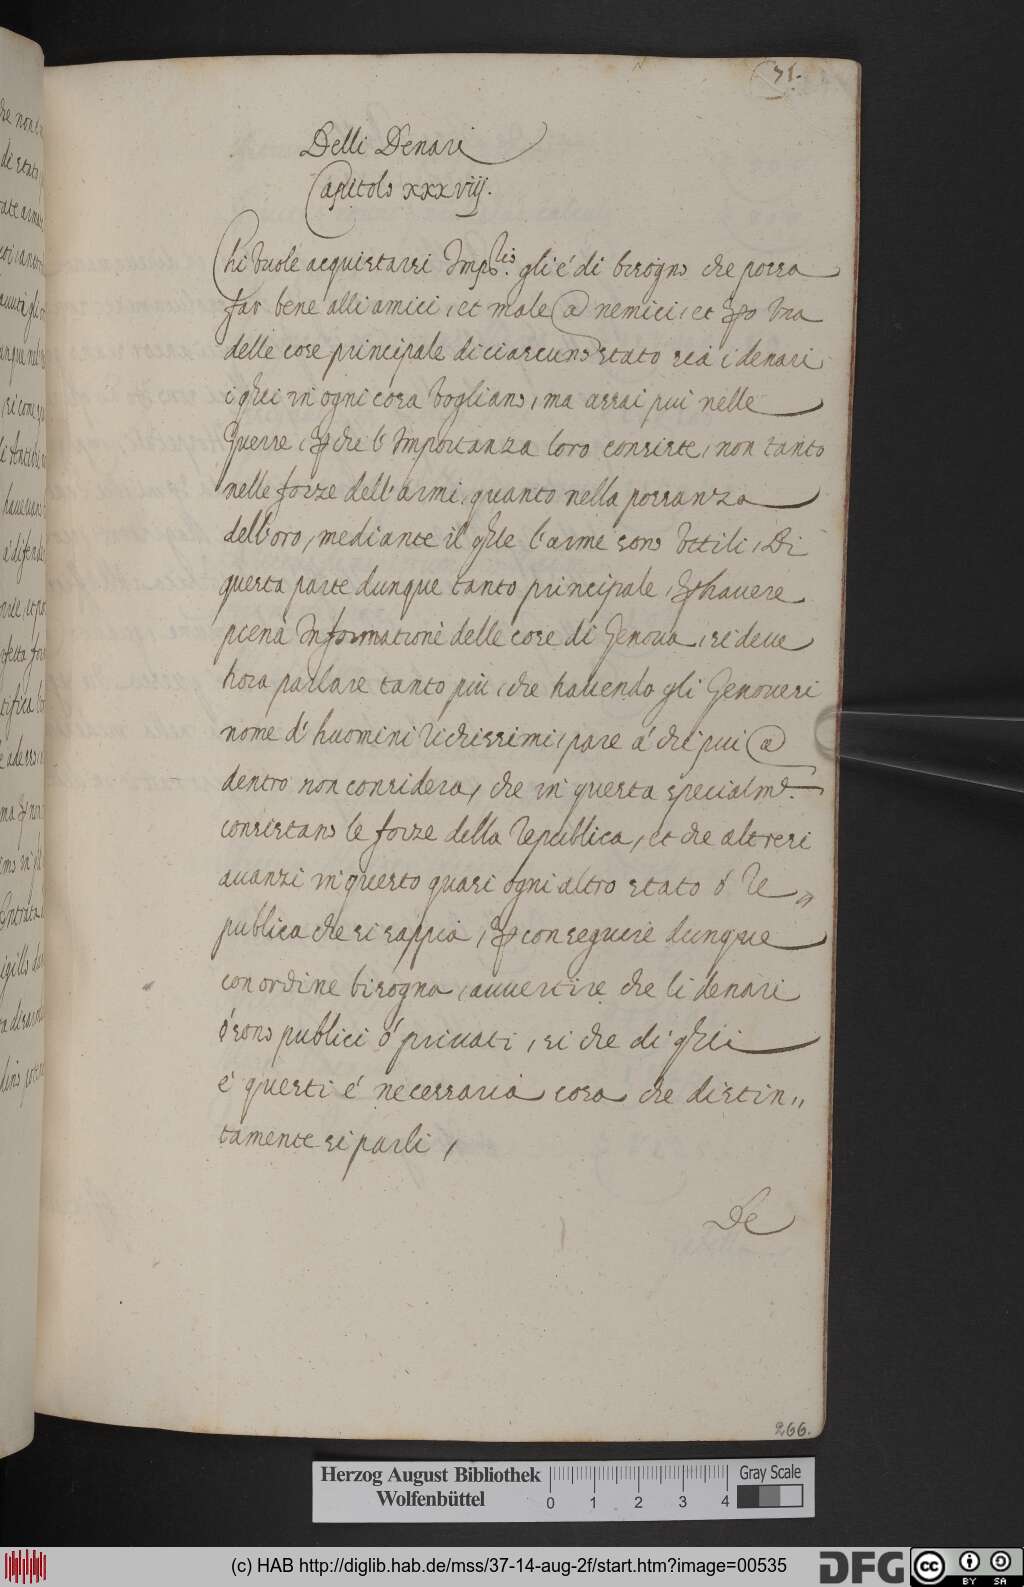 71.
Delli Denari
Capitolo xxxviij.
Chi vuole acquistarsi Imp.lio gli é di bisogno che possa
far bene alli amici, et male a nemici, et però una
delle cose principale di ciascuno stato sia i denari
i q̃li in ogni cosa vogliano, ma assai piu nelle
Guerre, perche l'Importanza loro consiste, non tanto
nelle forze dell'armi, quanto nella possanza
dell'oro, mediante il q̃le l'arme sono uttili, Di
questa parte dunque tanto principale, per havere
piena Informatione delle cose di Genova, si deve
hora parlare tanto piu, che havendo gli Genovesi
nome d'huomini Ricchissimi, pare á chi piu a
dentro non considera, che in questa specialm.te
consistano le forze della Republica, et che altresi
avanzi in questo quasi ogni altro stato ó Re=
publica che si sappia, per conseguire dunque
con ordine bisogna, avvertire che li denari
ó sono publici ó privati, si che di q̃lli
é questi é necessaria cosa che distin=
tamente si parli,
De
266.
Herzog August Bibliothek
Wolfenbüttel
0 1 2 3 4
Gray Scale
(c) HAB http://diglib.hab.de/mss/37-14-aug-2f/start.htm?image=00535
DFG
cc BY SA